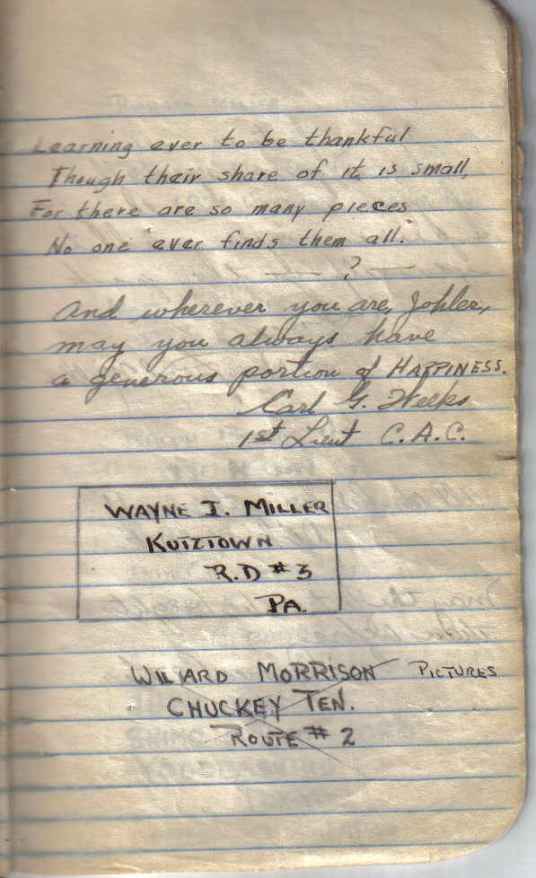 Learning ever to be thankful
Though their share of it is small,
For there are so many pieces
No one ever finds them all.
— ? —
And wherever you are, Johlee,
may you always have
a generous portion of HAPPINESS.
Carl G. Weeks
1st Lieut C.A.C.
WAYNE I. MILLER
KUTZTOWN
R.D #3
PA.
WILLARD MORRISON PICTURES
CHUCKEY TEN.
ROUTE # 2